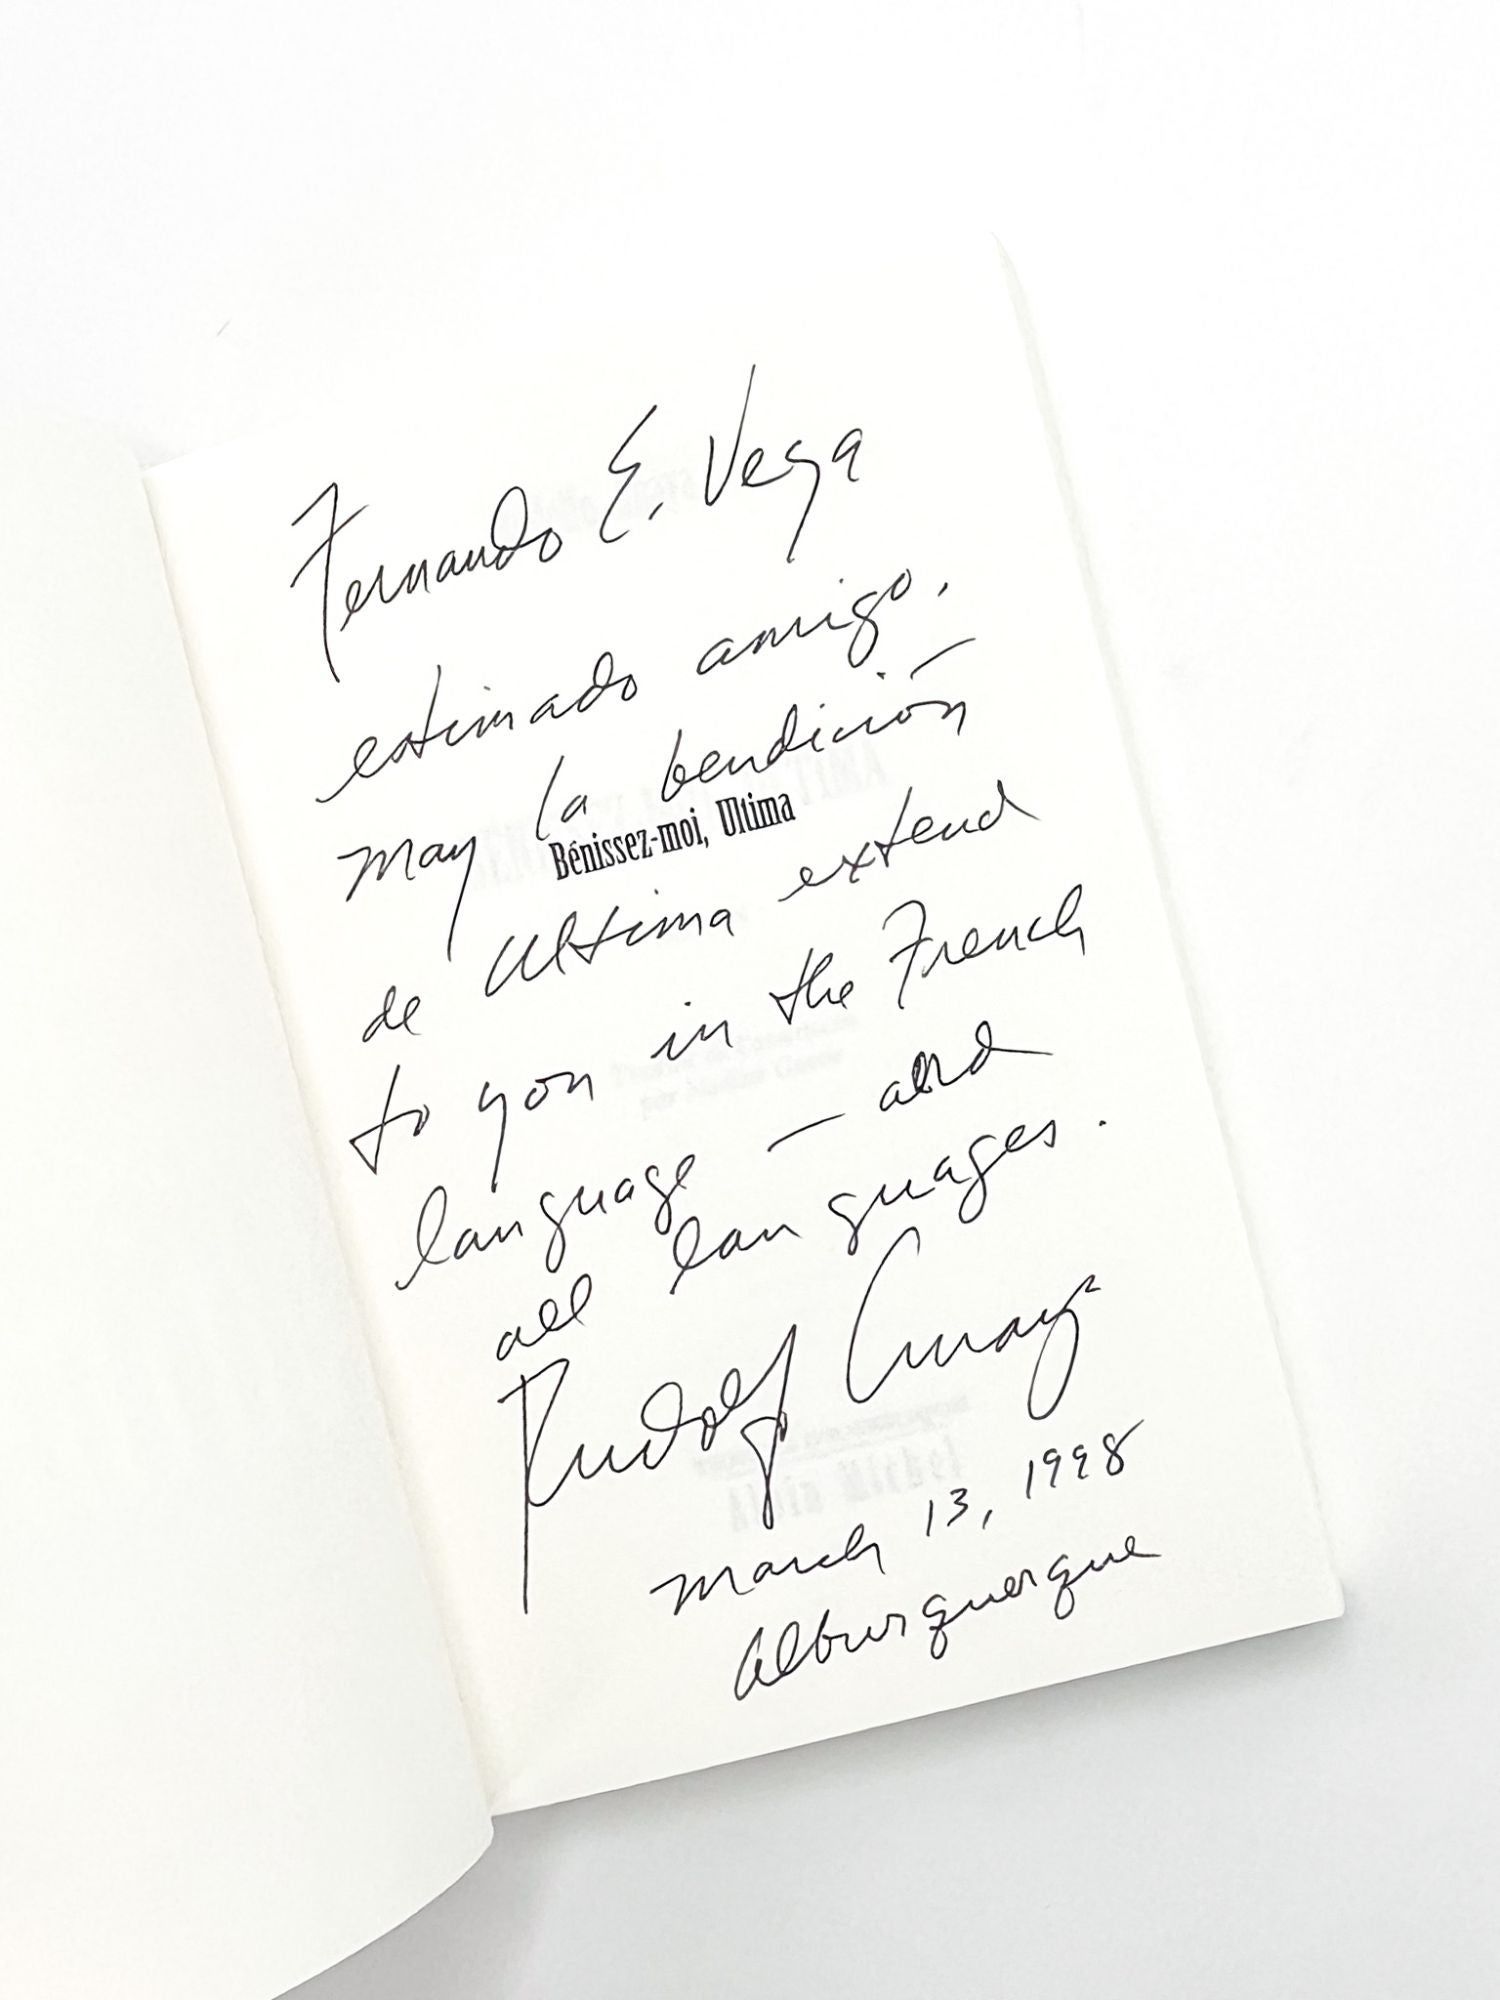 Fernando E. Vega
estimado amigo,
may la bendición
Bénissez-moi, Ultima
de Ultima extend
to you in the French
language — and
all languages.
Rudolfo Anaya
March 13, 1998
Alburquerque